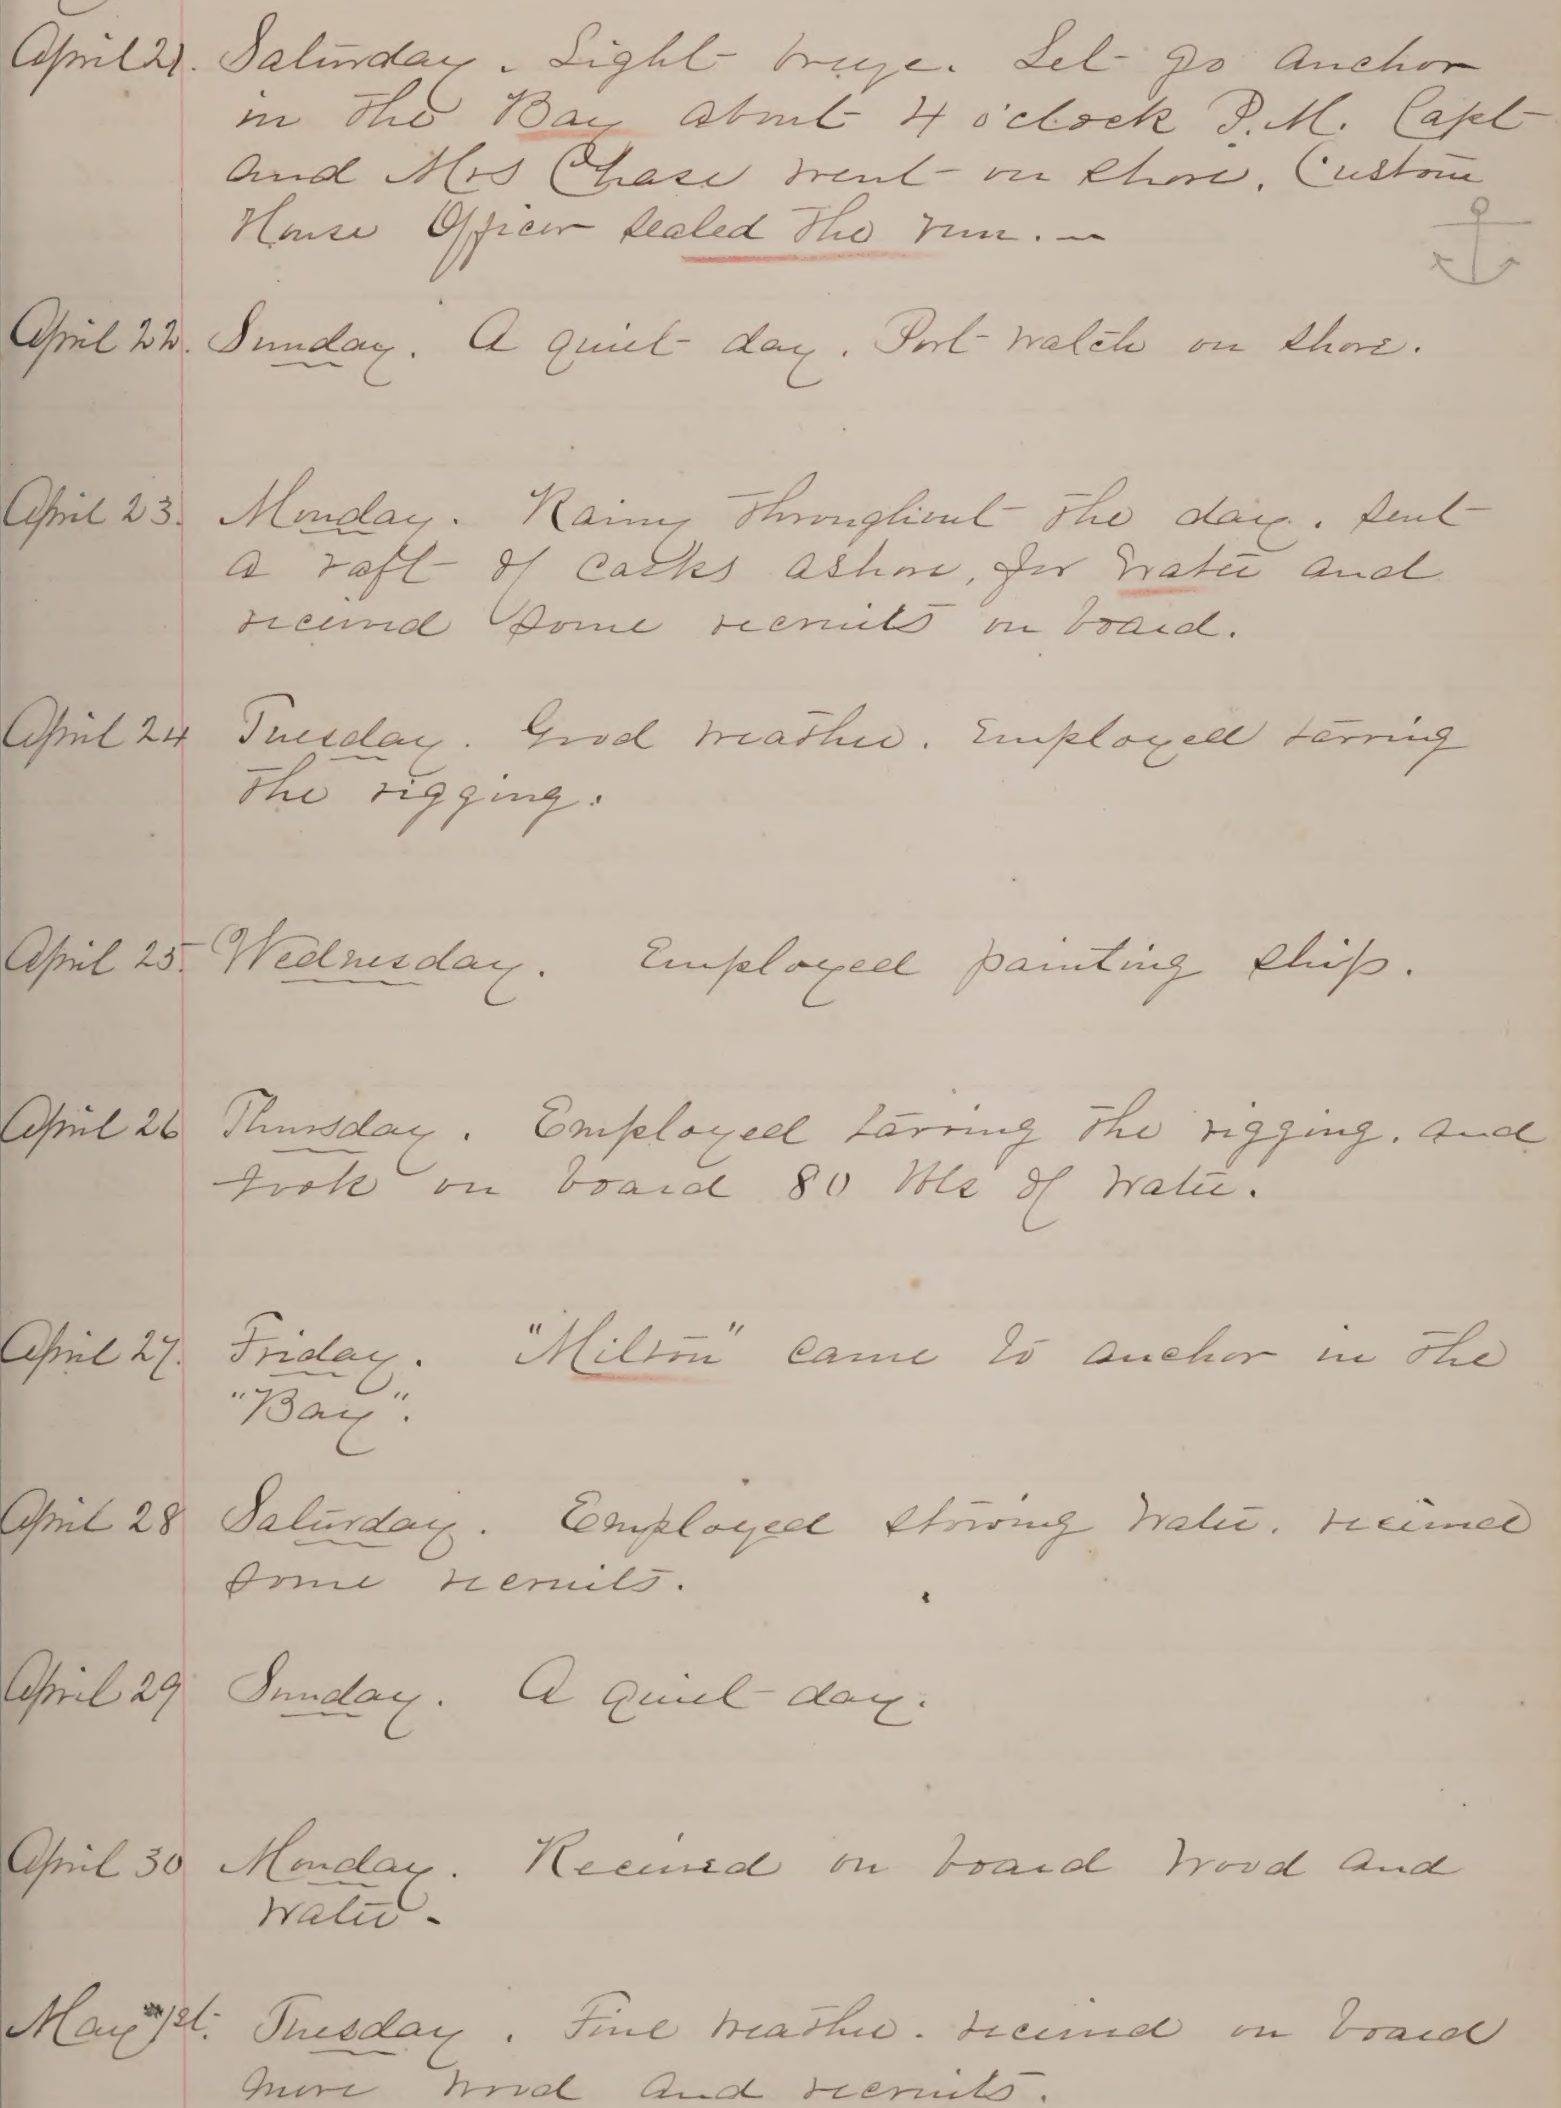 April 21. Saturday. Light breeze. Let go anchor
in the Bay about 4 o'clock P.M. Capt
and Mrs Chase went on shore. Custom
House Officer sealed the rum.
April 22. Sunday. A quiet day. Port watch on shore.
April 23. Monday. Rainy throughout the day. sent
a raft of casks ashore, for water and
received some recruits on board.
April 24 Tuesday. Good weather. Employed tarring
the rigging.
April 25. Wednesday. Employed painting ship.
April 26 Thursday. Employed tarring the rigging. and
took on board 80 bbls of water.
April 27. Friday. "Milton" came to anchor in the
"Bay".
April 28 Saturday. Employed stowing water. received
some recruits.
April 29 Sunday. A quiet day.
April 30 Monday. Received on board wood and
water.
May 1st. Tuesday. Fine weather. received on board
more wood and recruits.